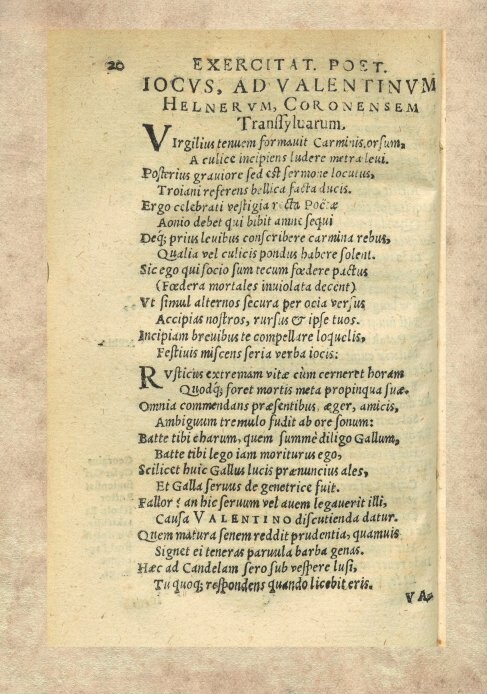 20 EXERCITAT. POET.
IOCVS, AD VALENTINVM
HELNERVM, CORONENSEM
Transſyluarum.
VIrgilius tenuem formauit Carminis orſum,
A culice incipiens ludere metra leui.
Poſterius grauiore ſed est ſermone locutus,
Troiani referens bellica facta ducis.
Ergo celebrati veſtigia recta Poëtæ
Aonio debet qui bibit amne ſequi
Deq; prius leuibus conſcribere carmina rebus,
Qualia vel culicis pondus habere ſolent.
Sic ego qui ſocio ſum tecum fœdere pactus
(Fœdera mortales inuiolata decent)
Vt ſimul alternos ſecura per ocia verſus
Accipias noſtros, rurſus & ipſe tuos.
Incipiam breuibus te compellare loquelis,
Feſtiuis miſcens ſeria verba iocis:
RVſticus extremam vitæ cùm cerneret horam
Quodq; foret mortis meta propinqua ſuæ.
Omnia commendans præſentibus, æger, amicis,
Ambiguum tremulo fudit ab ore ſonum:
Batte tibi charum, quem ſummè diligo Gallum,
Batte tibi lego iam moriturus ego,
Scilicet huic Gallus lucis prænuncius ales,
Et Galla ſeruus de genetrice fuit.
Fallor? an hic ſeruum vel auem legauerit illi,
Cauſa VALENTINO diſcutienda datur.
Quem matura ſenem reddit prudentia, quamuis
Signet ei teneras paruula barba genas.
Hæc ad Candelam ſero ſub veſpere luſi,
Tu quoq; reſpondens quando licebit eris.
VA-